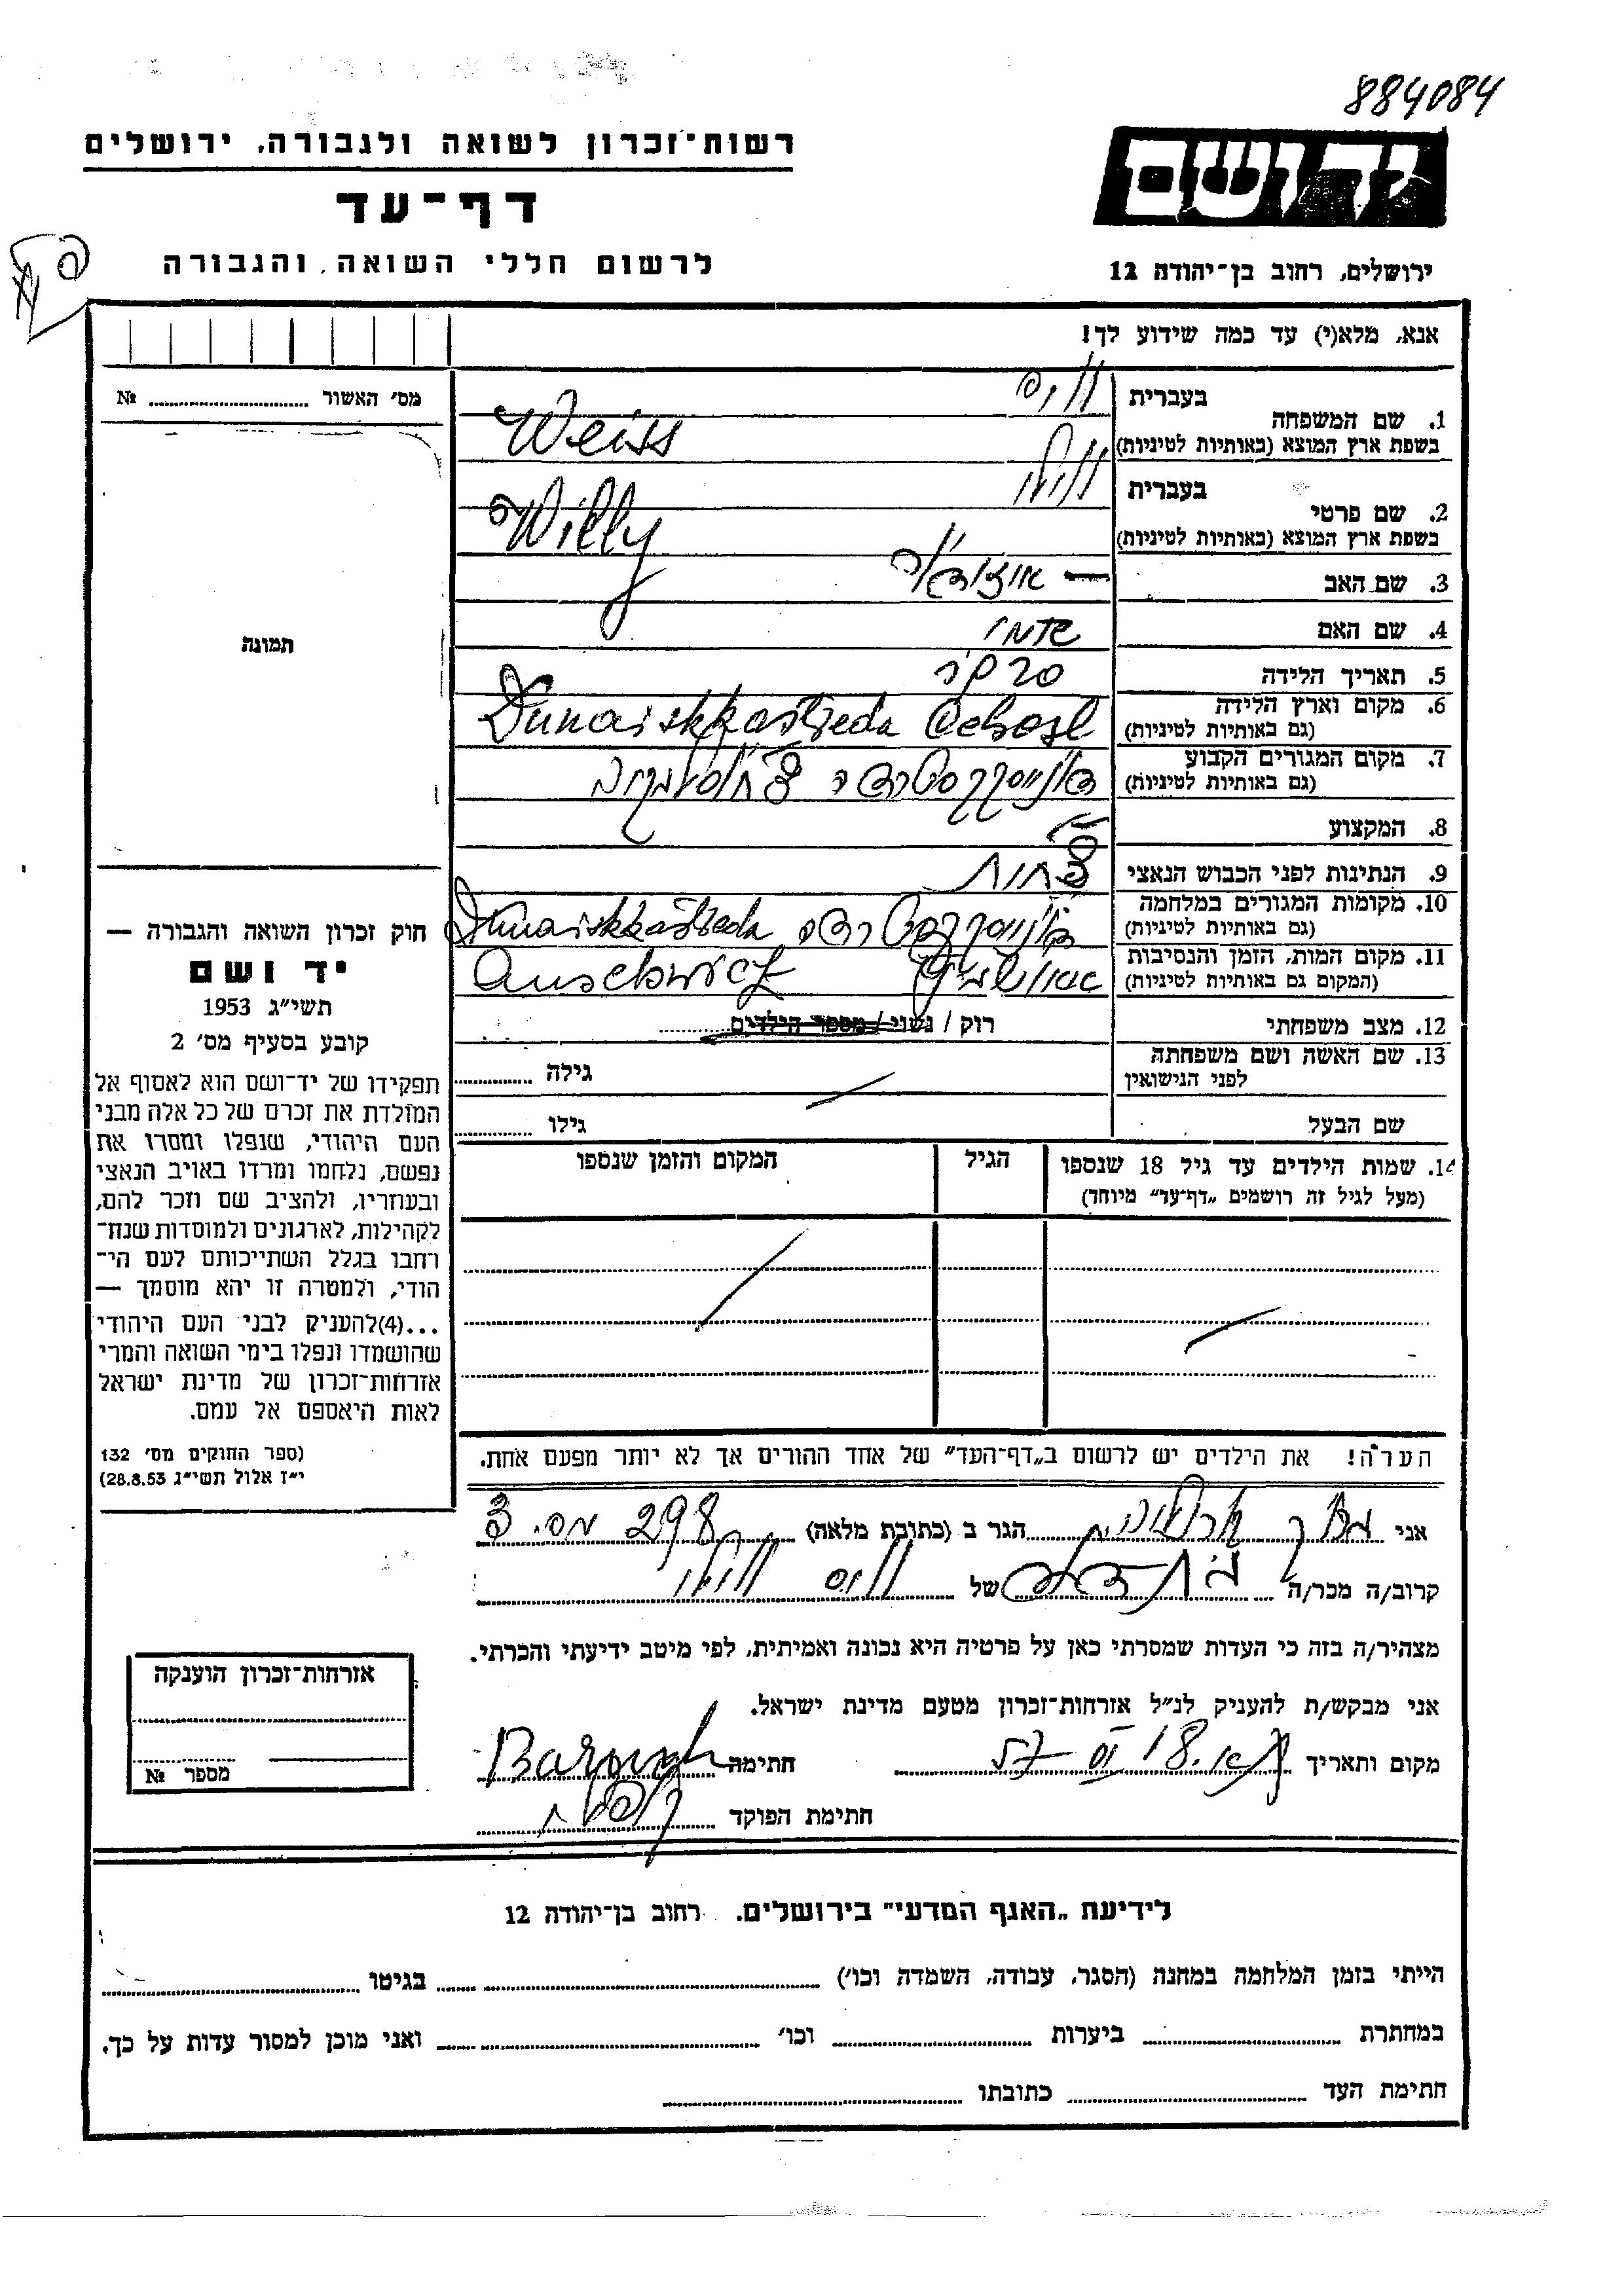 884084
רשות־זכרון לשואה ולגבורה, ירושלים
ידושם
דף־עד
לרשום חללי השואה והגבורה
ירושלים, רחוב בן־יהודה 12
אנא, מלא(י) עד כמה שידוע לך!
מס׳ האשור № ........
תמונה
1. שם המשפחה
בעברית ווייס
בשפת ארץ המוצא (באותיות לטיניות) Weiss
2. שם פרטי
בעברית ווילי
בשפת ארץ המוצא (באותיות לטיניות) Willy
3. שם האב
4. שם האם
5. תאריך הלידה
6. מקום וארץ הלידה
(גם באותיות לטיניות) Dunaiskkastreda
7. מקום המגורים הקבוע
(גם באותיות לטיניות)
8. המקצוע
9. הנתינות לפני הכבוש הנאצי
10. מקומות המגורים במלחמה
(גם באותיות לטיניות) Dunaiskkastreda
11. מקום המות, הזמן והנסיבות
(המקום גם באותיות לטיניות) Auschwicz
12. מצב משפחתי רוק / נשוי / מספר הילדים ........
13. שם האשה ושם משפחתה
לפני הנישואין גילה ........
שם הבעל גילו ........
14. שמות הילדים עד גיל 18 שנספו
(מעל לגיל זה רושמים „דף־עד״ מיוחד)
הגיל
המקום והזמן שנספו
חוק זכרון השואה והגבורה —
יד ושם
תשי״ג 1953
קובע בסעיף מס׳ 2
תפקידו של יד־ושם הוא לאסוף אל
המולדת את זכרם של כל אלה מבני
העם היהודי, שנפלו ומסרו את
נפשם, נלחמו ומרדו באויב הנאצי
ובעוזריו, ולהציב שם וזכר להם,
לקהילות, לארגונים ולמוסדות שנח־
רחבו בגלל השתייכותם לעם הי־
הודי, ולמטרה זו יהא מוסמך —
...(4)להעניק לבני העם היהודי
שהושמדו ונפלו בימי השואה והמרי
אזרחות־זכרון של מדינת ישראל
לאות היאספם אל עמם.
(ספר החוקים מס׳ 132
י״ז אלול תשי״ג 28.8.53)
הערה! את הילדים יש לרשום ב„דף־העד״ של אחד ההורים אך לא יותר מפעם אחת.
אני ........ הגר ב (כתובת מלאה) 298
קרוב/ה מכר/ה ........ של ווייס ווילי
מצהיר/ה בזה כי העדות שמסרתי כאן על פרטיה היא נכונה ואמיתית, לפי מיטב ידיעתי והכרתי.
אני מבקש/ת להעניק לנ״ל אזרחות־זכרון מטעם מדינת ישראל.
מקום ותאריך 18 VI 57 חתימה Baruch
חתימת הפוקד ........
אזרחות־זכרון הוענקה
מספר №
לידיעת „האגף המדעי״ בירושלים. רחוב בן־יהודה 12
הייתי בזמן המלחמה במחנה (הסגר, עבודה, השמדה וכו׳) ........ בגיטו ........
במחתרת ........ ביערות ........ וכו׳ ........ ואני מוכן למסור עדות על כך.
חתימת העד ........ כתובתו ........